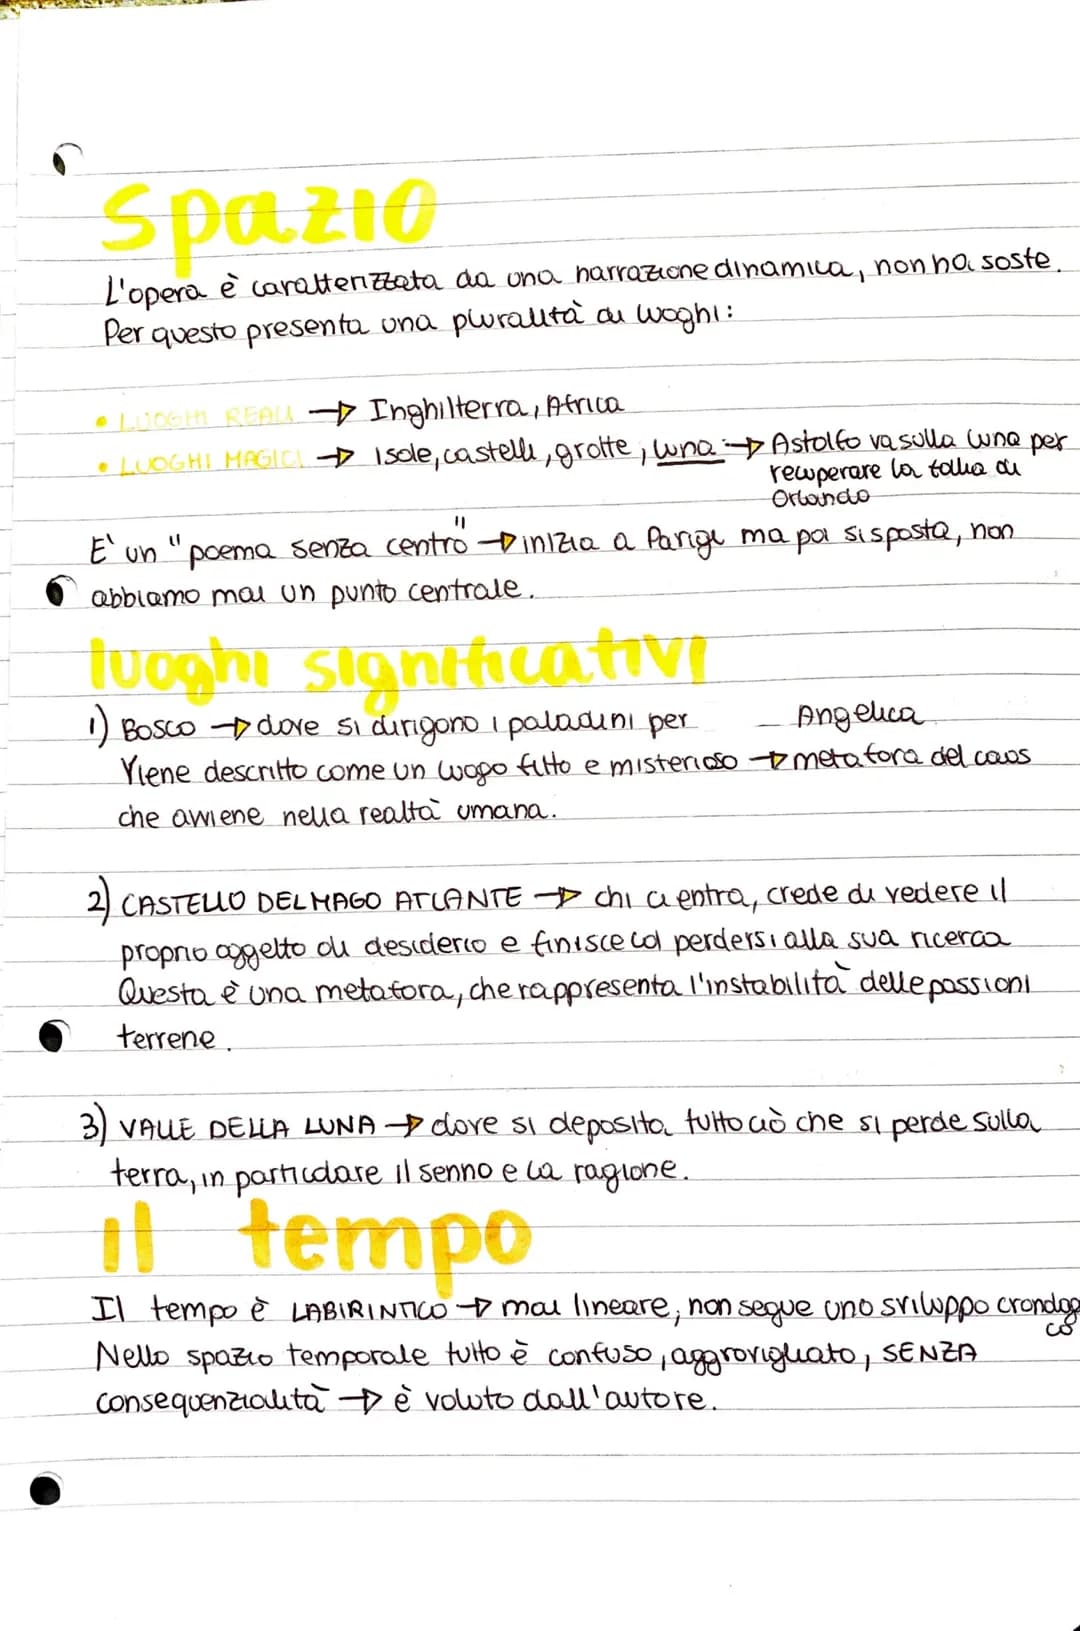 Spazio
L'opera è caratterizzata da una narrazione dinamica, non ha soste.
Per questo presenta una pluralità di luoghi:
• LUOGHI REALI → Inghilterra, Africa
• LUOGHI MAGICI → Isole, castelli, grotte, luna → Astolfo va sulla luna per
recuperare la follia di
Orlando
E' un "poema senza centro" → inizia a Parigi ma poi si sposta, non
abbiamo mai un punto centrale.
luoghi significativi
1) BOSCO → dove si dirigono i paladini per Angelica
Viene descritto come un luogo fitto e misterioso → metafora del caos
che avviene nella realtà umana.
2) CASTELLO DEL MAGO ATLANTE → chi ci entra, crede di vedere il
proprio oggetto di desiderio e finisce col perdersi alla sua ricerca
Questa è una metafora, che rappresenta l'instabilità delle passioni
terrene.
3) VALLE DELLA LUNA → dove si deposita tutto ciò che si perde sulla
terra, in particolare il senno e la ragione.
il tempo
Il tempo è LABIRINTICO → mai lineare, non segue uno sviluppo cronologi
co
Nello spazio temporale tutto è confuso, aggrovigliato, SENZA
consequenzialità → è voluto dall'autore.